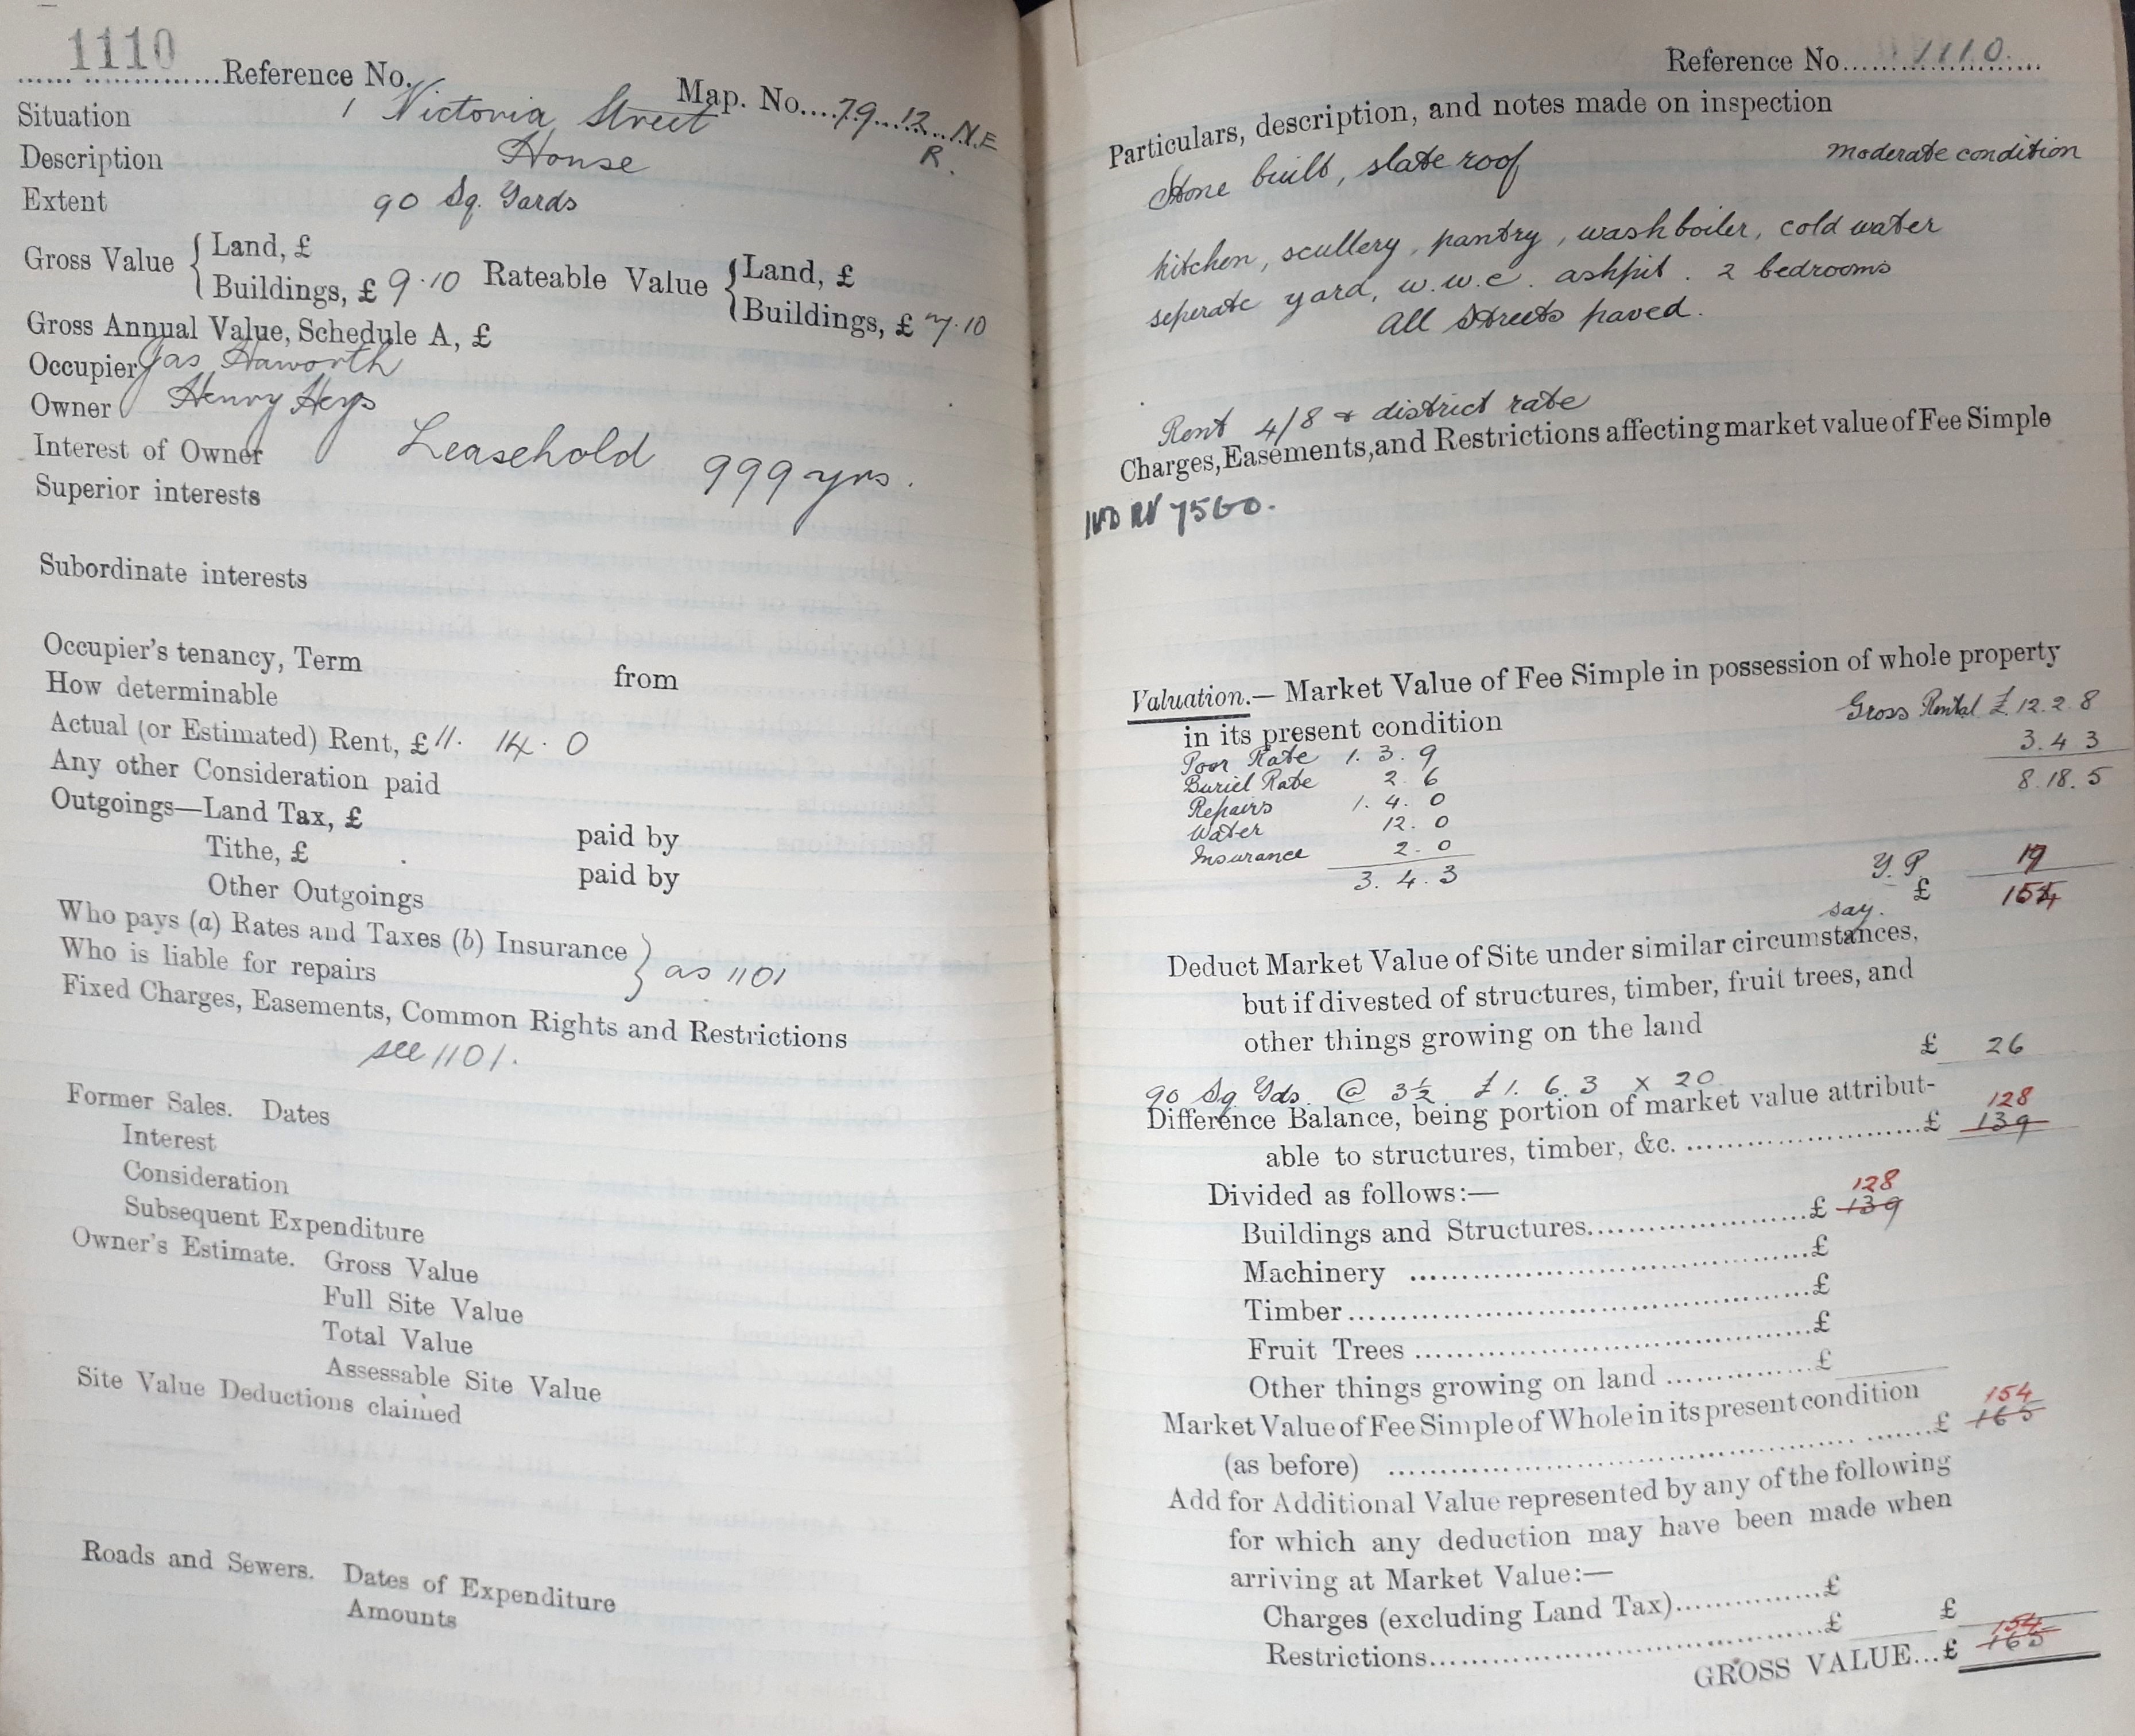 1110
Reference No.
Map. No.... 79 12 N.E
R.
Situation 1 Victoria Street
Description House
Extent 90 Sq. Yards
Gross Value { Land, £
Buildings, £ 9.10
Rateable Value { Land, £
Buildings, £ 7.10
Gross Annual Value, Schedule A, £
Occupier Jas Haworth
Owner Henry Heys
Interest of Owner Leasehold 999 yrs.
Superior interests
Subordinate interests
Occupier's tenancy, Term from
How determinable
Actual (or Estimated) Rent, £ 11. 14. 0
Any other Consideration paid
Outgoings—Land Tax, £ paid by
Tithe, £ paid by
Other Outgoings
Who pays (a) Rates and Taxes (b) Insurance
Who is liable for repairs } as 1101
Fixed Charges, Easements, Common Rights and Restrictions
see 1101.
Former Sales. Dates
Interest
Consideration
Subsequent Expenditure
Owner's Estimate. Gross Value
Full Site Value
Total Value
Assessable Site Value
Site Value Deductions claimed
Roads and Sewers. Dates of Expenditure
Amounts
Reference No. 1110
Particulars, description, and notes made on inspection
Stone built, slate roof moderate condition
kitchen, scullery, pantry, wash boiler, cold water
seperate yard, w.w.c. ashpit. 2 bedrooms
All Streets paved.
Rent 4/8 & district rate
Charges, Easements, and Restrictions affecting market value of Fee Simple
IVD RV 7560.
Valuation.— Market Value of Fee Simple in possession of whole property
in its present condition Gross Rental £ 12.2.8
Poor Rate 1. 3. 9 3.4.3
Buriel Rate 2. 6 8.18.5
Repairs 1. 4. 0
Water 12. 0
Insurance 2. 0
3. 4. 3
Y.P.
say. £ 154
Deduct Market Value of Site under similar circumstances,
but if divested of structures, timber, fruit trees, and
other things growing on the land £ 26
90 Sq Yds. @ 3½ £1. 6. 3 x 20
128
Difference Balance, being portion of market value attribut-
able to structures, timber, &c. £ 139
Divided as follows:—
128
Buildings and Structures £ 139
Machinery £
Timber £
Fruit Trees £
Other things growing on land £
Market Value of Fee Simple of Whole in its present condition
154
(as before) £ 165
Add for Additional Value represented by any of the following
for which any deduction may have been made when
arriving at Market Value:—
Charges (excluding Land Tax) £
Restrictions £ £
154
GROSS VALUE... £ 165